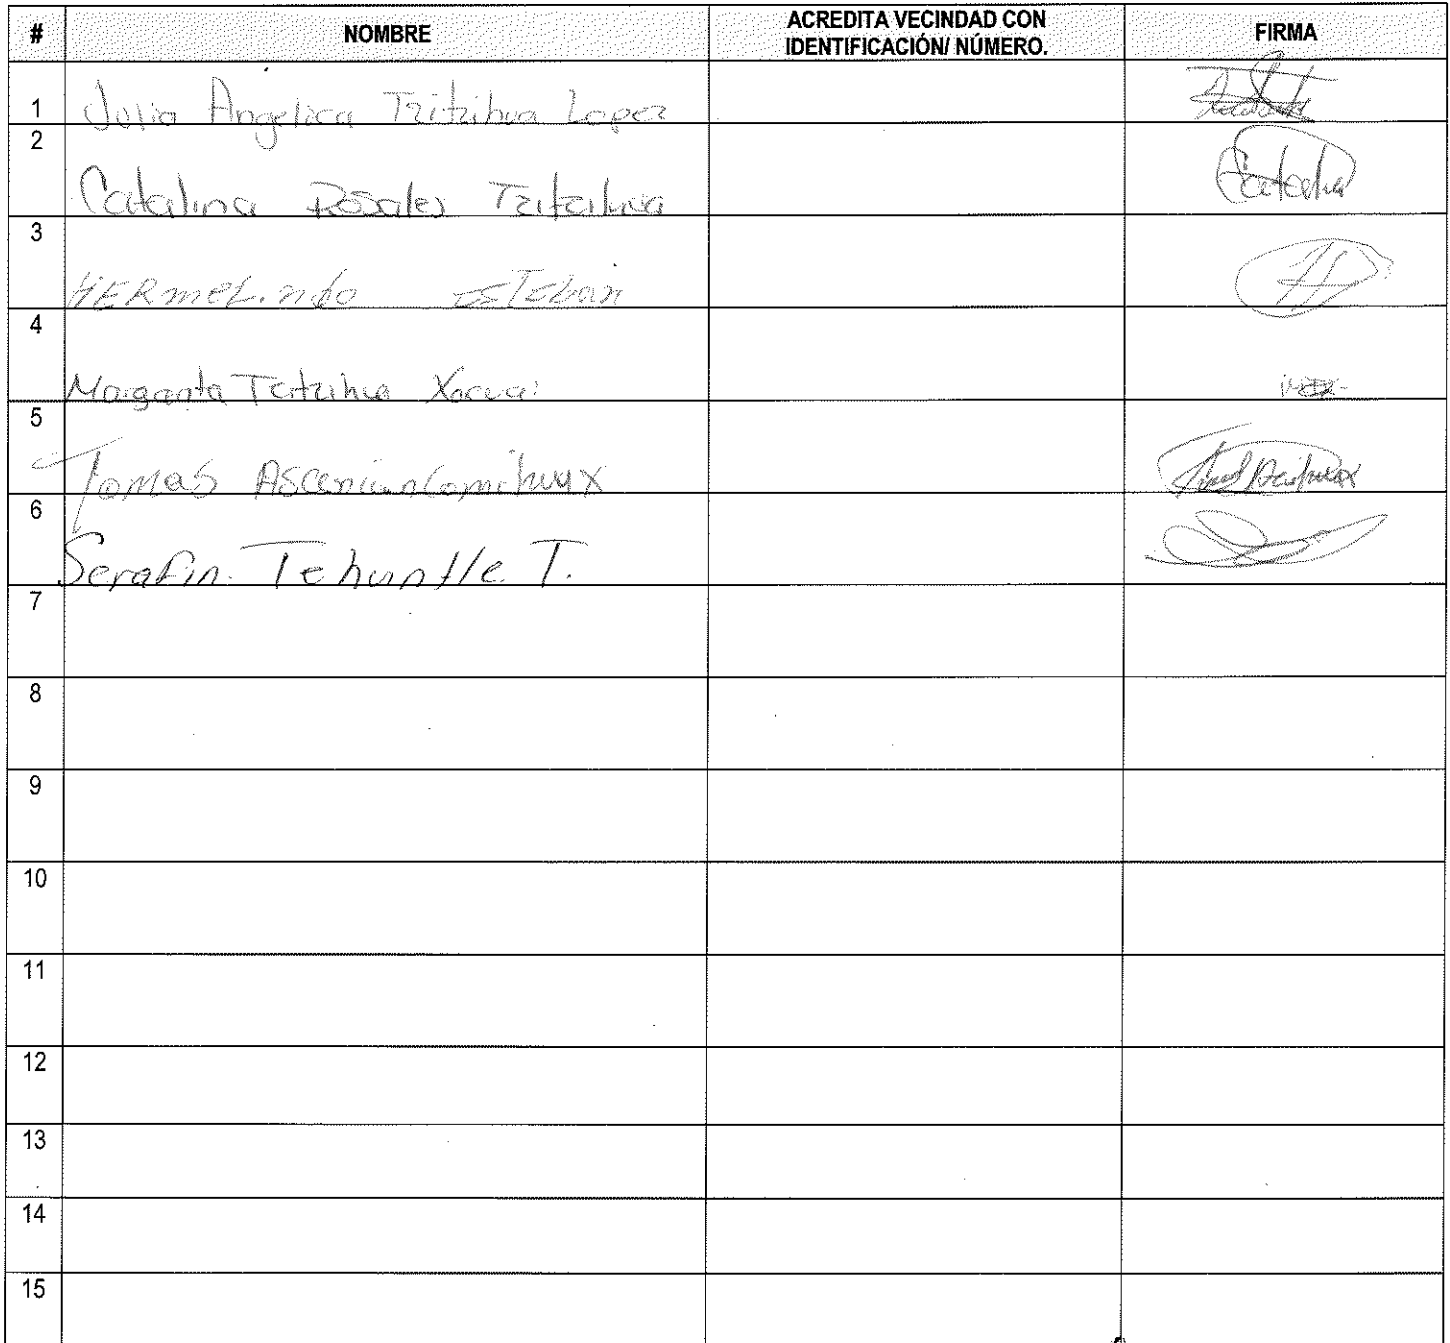 # NOMBRE ACREDITA VECINDAD CON IDENTIFICACIÓN/ NÚMERO. FIRMA
1 Julia Angelica Tzitzihua Lopez
2 Catalina Rosales Tzitzihua Catalina
3 HERmeLindo Esteban
4 Margarita Tzitzihua
5 Tomas
6 Serafin. Tehuintle T.
7
8
9
10
11
12
13
14
15